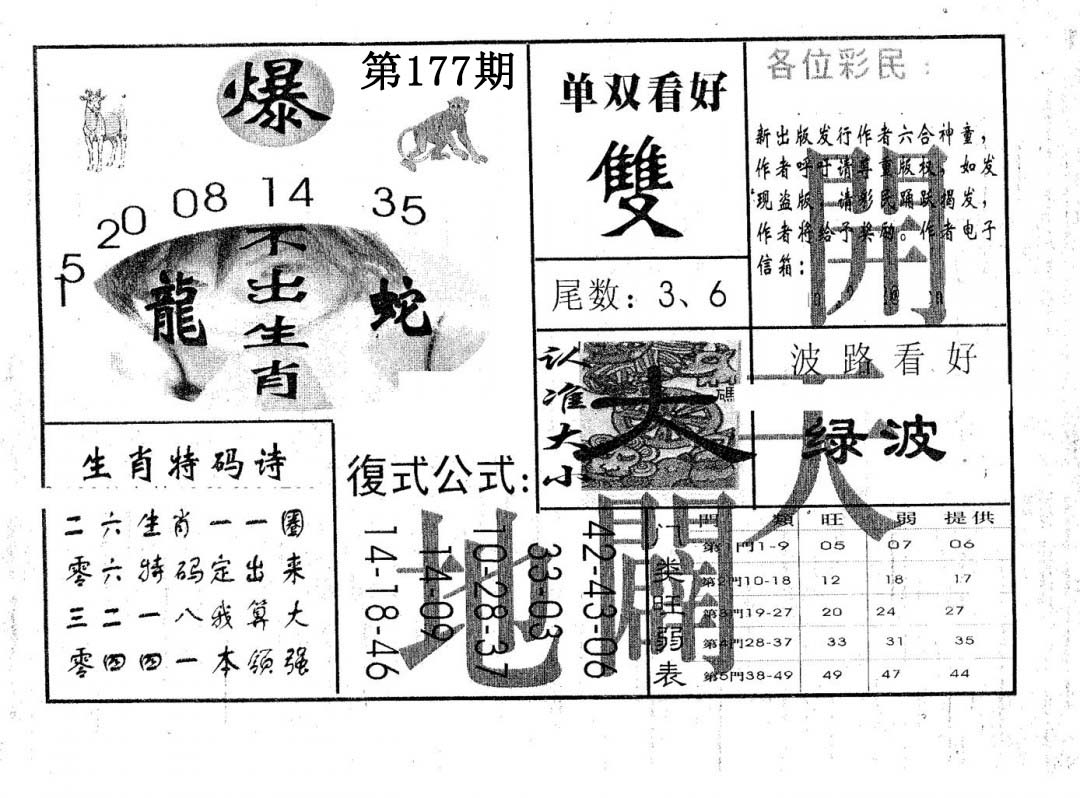 第177期
爆
15 20 08 14 35
龍
不出生肖
蛇
单双看好
雙
尾数：3、6
各位彩民：
新出版发行作者六合神童，
作者呼吁请尊重版权，如发
现盗版，请彩民踊跃揭发，
作者将给予奖励。作者电子
信箱：
開
天
闢
地
认准大小
大
碼
波路看好
绿波
生肖特码诗
二六生肖一一圈
零六特码定出来
三二一八我算大
零四四一本领强
復式公式:
14-18-46
14-09
10-28-37
33-03
42-43-06
门类旺弱表
門類 旺 弱 提供
第1門1-9 05 07 06
第2門10-18 12 18 17
第3門19-27 20 24 27
第4門28-37 33 31 35
第5門38-49 49 47 44